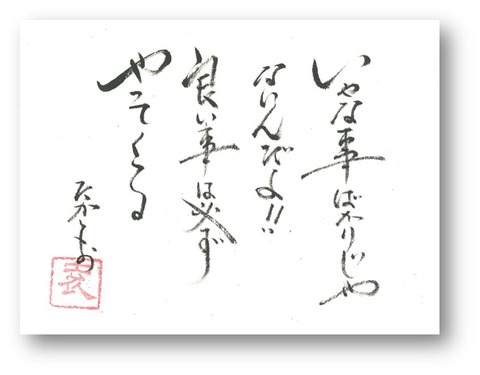 いやな事ばかりじゃ
ないんだよ!!
良い事は必ず
やってくる
たかとものり